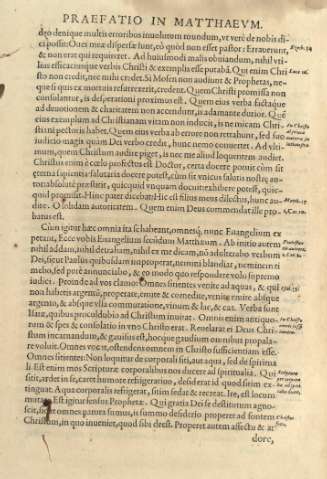 PRAEFATIO IN MATTHAEVM.
do denique multis erroribus inuolutum mundum, vt verè de nobis di-
ci possit: Oues meæ dispersæ sunt, eò quòd non esset pastor: Errauerunt,
& non erat qui requireret. Ad huiusmodi malis obuiandum, nihil vti-
lius efficaciusque verbis Christi & exemplis esse putabā. Qui enim Chri
sto non credit, nec mihi credet. Si Mosen non audiunt & Prophetas, ne-
que si quis ex mortuis resurrexerit, credent. Quem Christi promissa non
consolantur, is desperationi proximus est. Quem eius verba factaque
ad deuotionem & charitatem non accendunt, is adamante durior. Quē
eius exemplum ad Christianam vitam non inducit, is ne micam Chri-
sti in pectoris habet. Quem eius verba ab errore non retrahunt, sed suo
iudicio magis quàm Dei verbo credit, hunc nemo conuertet. Ad vlti-
mum, quem Christum audire piget, is nec me aliud loquentem audiet.
Christus enim è cœlo profectus est Doctor, certa docere potuit cùm sit
æterna sapientia: salutaria docere potest, cùm sit vnicus salutis nostræ au-
tor: absolutè præstitit, quicquid vnquam docuit:
quid promisit. Hinc pater dicebat: Hic est filius meus dilectus, hunc au-
dite. O solidam autoritatem. Quem enim Deus commendat ille pro-
batus est.
Cùm igitur hæc omnia ita se habeant, omnesq; nunc Euangelium ex
petant, Ecce vobis Euangelium secūdum Matthæum. Ab initio autem
nihil addam, nihil detraham, nihil ex me dicam, nō adulterabo verbum
Dei, sicut Paulus quibusdam improperat, nemini blandiar, nemini
sed purè annunciabo, & eo modo quo respondere volo supremo
iudici. Proinde ad vos clamo: Omnes sitientes venite ad aquas, & qui
non habetis argentū, properate, emite & comedite, venite emite absque
argento, & absque vlla commutatione, vinum & lac, & cæt. Verba sunt
Esaiæ, quibus prouclubio ad Christum inuitat. Omnium enim antiquo-
rum & spes & consolatio in vno Christo erat. Reuelarat ei Deus Chri-
stum incarnandum, & gauisus est, hocque gaudium omnibus popula-
re voluit. Omnes vocat, ostendens omnem in Christo sufficientiam esse.
Omnes sitientes: Non loquitur de corporali siti, aut aqua, sed de spiritua
li. Est enim mos Scripturæ corporalibus nos ducere ad spiritualia. Qui
sitit, ardet in se, caret humore refrigeratiuo, desiderat id quod sitim ex-
tinguat. Aqua corporalis refrigerat, sitim sedat & recreat. Ire, est locum
mutare. Est igitur sensus Prophetæ. Qui gratia Dei se destitutum agno-
scit, sicut omnes panes sumus, is summo desiderio properet ad fontem
Christum, in quo inueniet, quod sibi deest. Properet autem affectu & ar
dore,